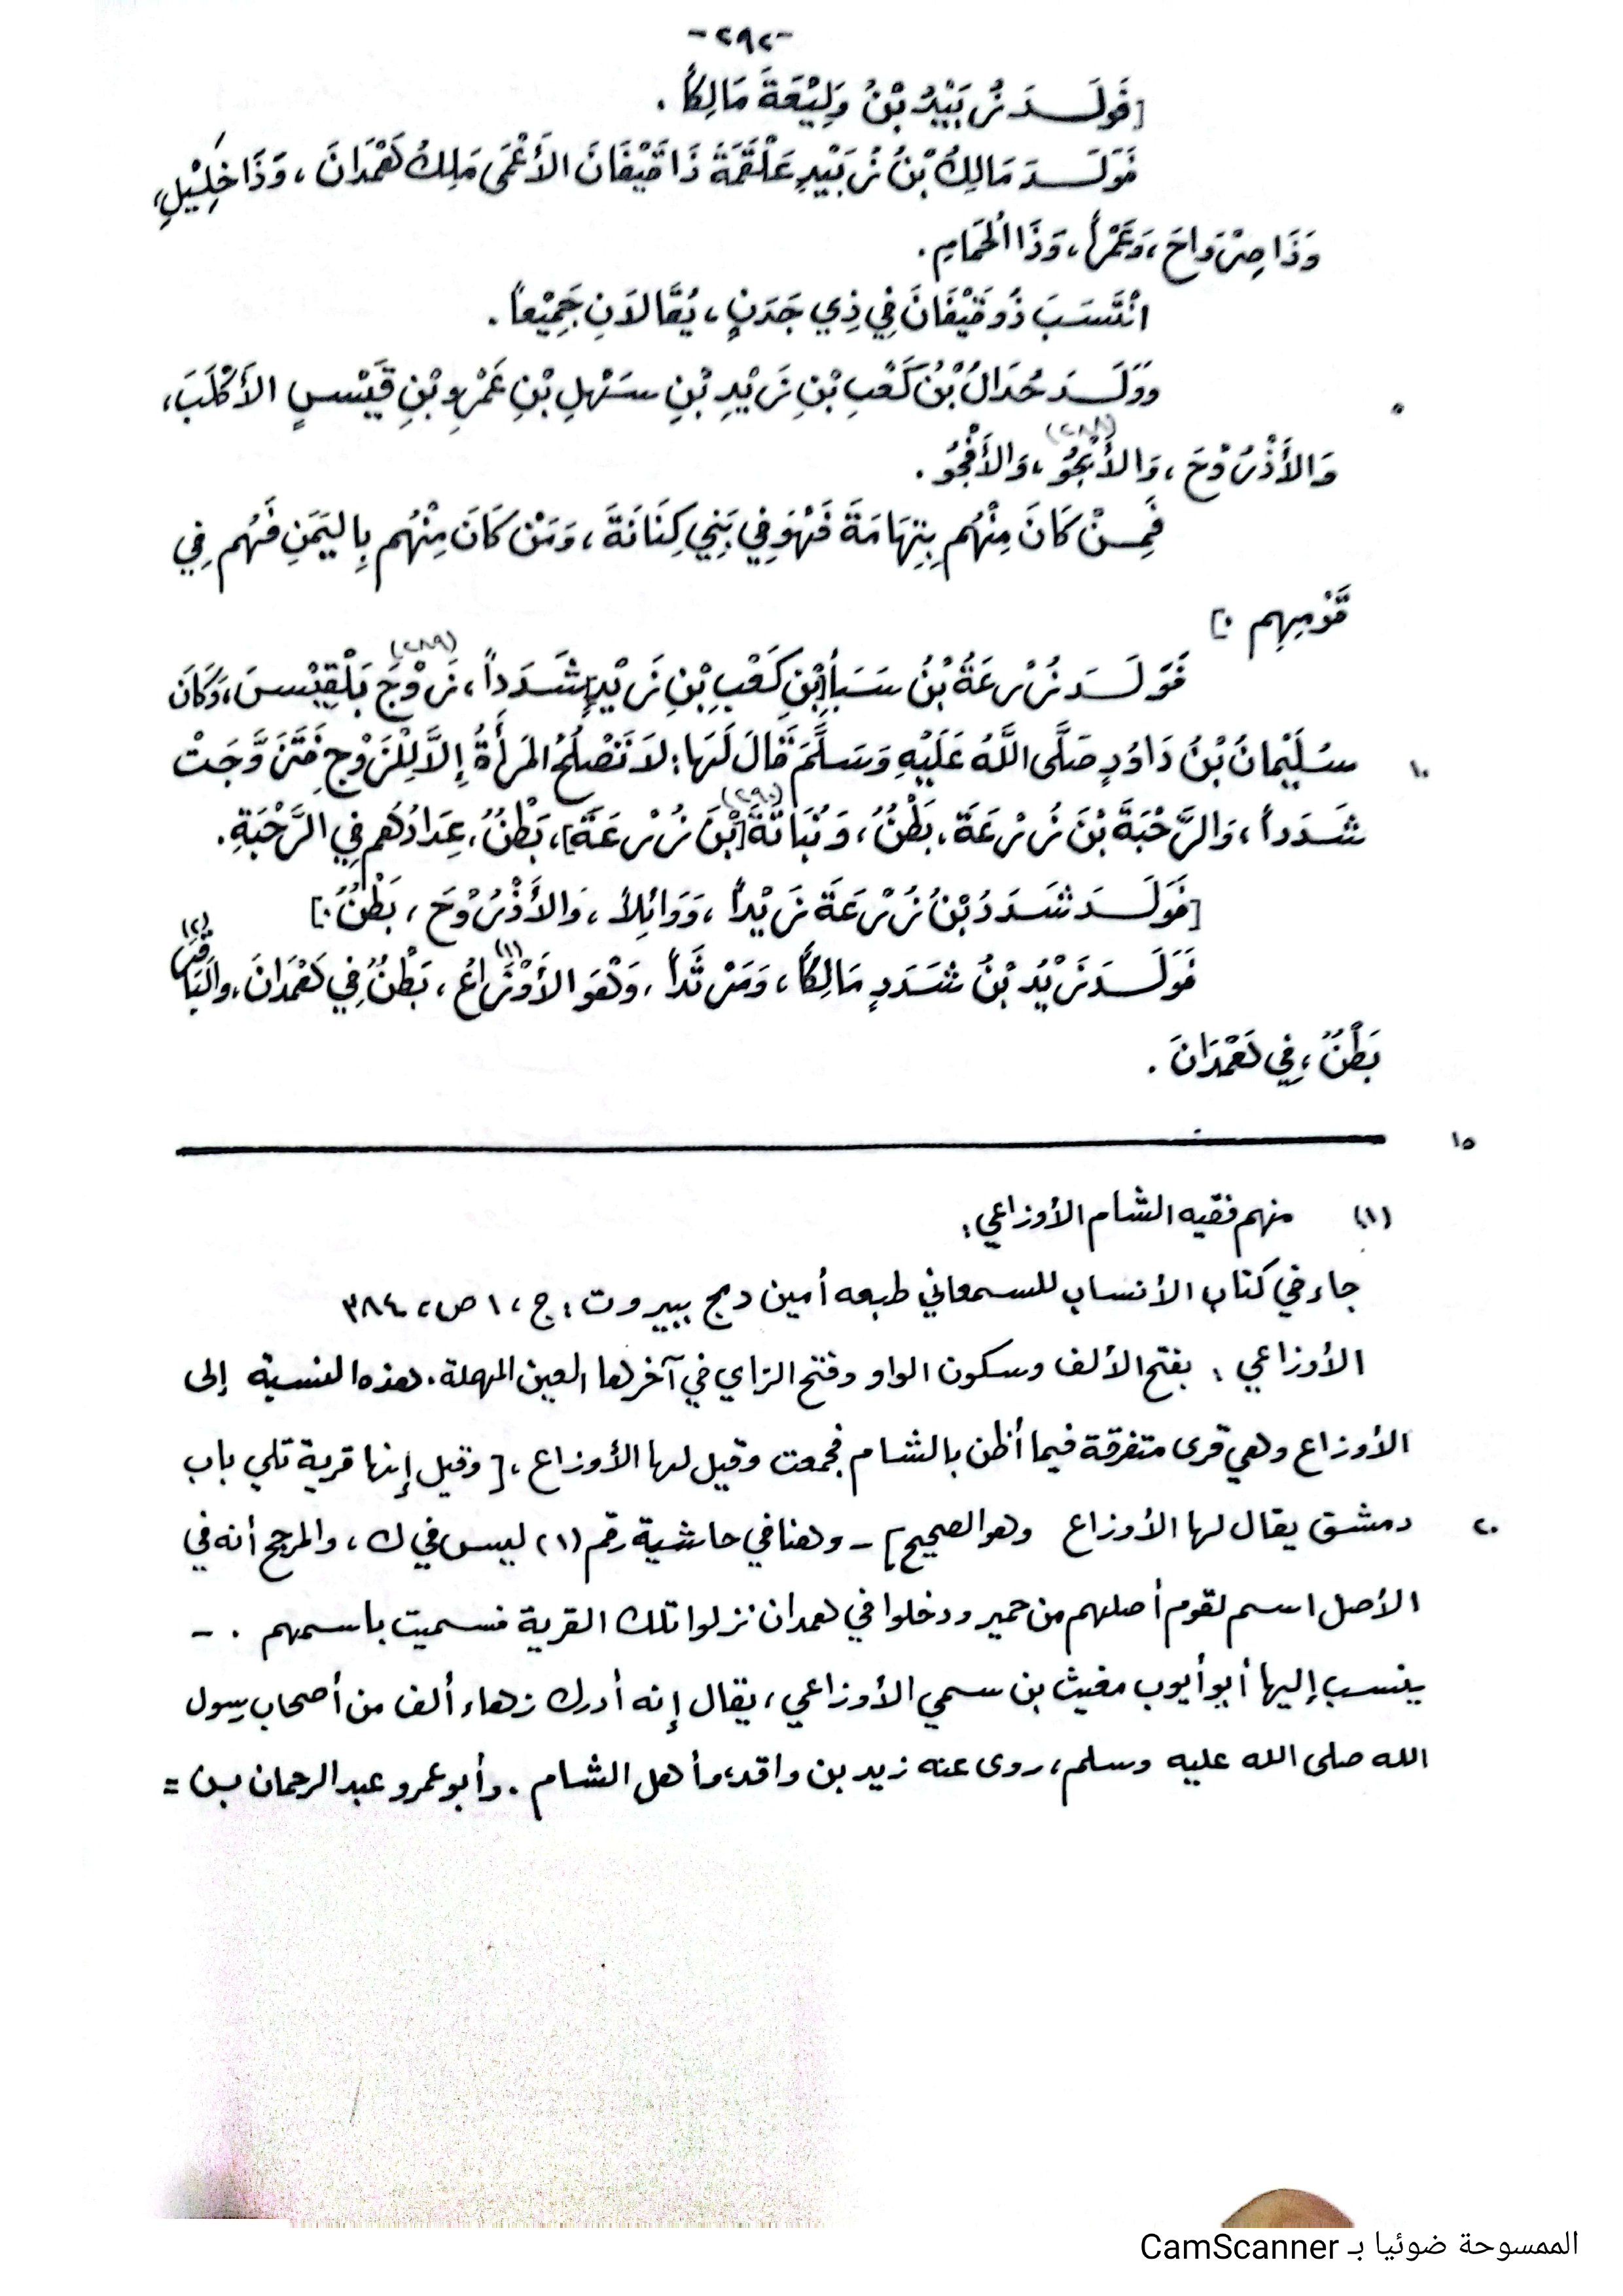 -٢٩٢-
[فَوَلَـــدَ زُبَيْدُ بْنُ وَلِيْعَةَ مَالِكاً .
فَوَلَـــدَ مَالِكُ بْنُ زُبَيْدٍ عَلْقَمَةَ ذَا قَيْفَانَ الأَعْمَى مَلِكُ هَمْدَانَ ، وَذَا خِلِيْلٍ،
وَذَا صِرْوَاحَ ، وَعَمْراً ، وَذَا الحَمَامِ .
انْتَسَبَ ذُو قَيْفَانَ فِي ذِي جَدَنٍ ، يُقَالَانِ جَمِيْعاً .
وَوَلَـــدَ حُدَالُ بْنُ كَعْبِ بْنِ زَيْدِ بْنِ سَهْلِ بْنِ عَمْرِو بْنِ قَيْسٍ الأَكْلَبَ ،
٥
وَالأَذْرُوْحَ ، وَالأَبْجُوَ (٢٨٨) ، وَالأَفْجُوَ .
فَمِـــنْ كَانَ مِنْهُم بِتِهَامَةَ فَهُوَ فِي بَنِي كِنَانَةَ ، وَمَنْ كَانَ مِنْهُم بِاليَمَنِ فَهُم فِي
قَوْمِهِم .]
فَوَلَـــدَ زُرْعَةُ بْنُ سَبَأ[بْنِ كَعْبِ بْنِ زَيْدٍ]شَدَداً ، زَوْجَ (٢٨٩) بَلْقِيْسَ ، وَكَانَ
سُلَيْمانُ بْنُ دَاوُدٍ صَلَّى اللَّهُ عَلَيْهِ وَسَلَّمَ قَالَ لَهَا : لاَ تَصْلُحُ المَرأَةُ إِلاَّ لِلْزَوْجِ فَتَزَوَّجَتْ
١٠
شَدَداً ، وَالرَّحْبَةَ بْنَ زُرْعَةَ ، بَطْنٌ ، وَنُبَاتَةَ (٢٩٠) [بْنَ زُرْعَةَ] ، بَطْنٌ ، عِدَادُهُم فِي الرَّحْبَةِ .
[فَوَلَـــدَ شَدَدُ بْنُ زُرْعَةَ زَيْداً ، وَوَائِلاً ، وَالأَذْرُوْحَ ، بَطْنٌ .]
فَوَلَـــدَ زَيْدُ بْنُ شَدَدٍ مَالِكاً ، وَمَرْثَداً ، وَهُوَ الأَوْزَاعُ (١) ، بَطْنٌ فِي هَمْدَانَ ، وَالَبَاقِرَ (٢)
بَطْنٌ ، فِي هَمْدَانَ .
١٥
(١) منهم فقيه الشام الأوزاعي :
جاء في كتاب الأنساب للسمعاني طبعه أمين دمج ببيروت : ج ، ١ ص ، ٣٨٤
الأوزاعي : بفتح الألف وسكون الواو وفتح الزاي في آخرها العين المهملة . هذه النسبة إلى
الأوزاع وهي قرى متفرقة فيما أظن بالشام فجمعت وقيل لها الأوزاع ، [ وقيل إنها قرية تلي باب
دمشق يقال لها الأوزاع وهو الصحيح ] - وهنا في حاشية رقم (١) ليس في ك ، والمرجح أنه في
٢٠
الأصل اسم لقوم أصلهم من حمير ودخلوا في همدان نزلوا تلك القرية فسميت باسمهم . -
ينسب إليها أبو أيوب مغيث بن سمي الأوزاعي ، يقال إنه أدرك زهاء ألف من أصحاب رسول
الله صلى الله عليه وسلم ، روى عنه زيد بن واقد، وأهل الشام . وأبو عمرو عبد الرحمان بن =
الممسوحة ضوئيا بـ CamScanner